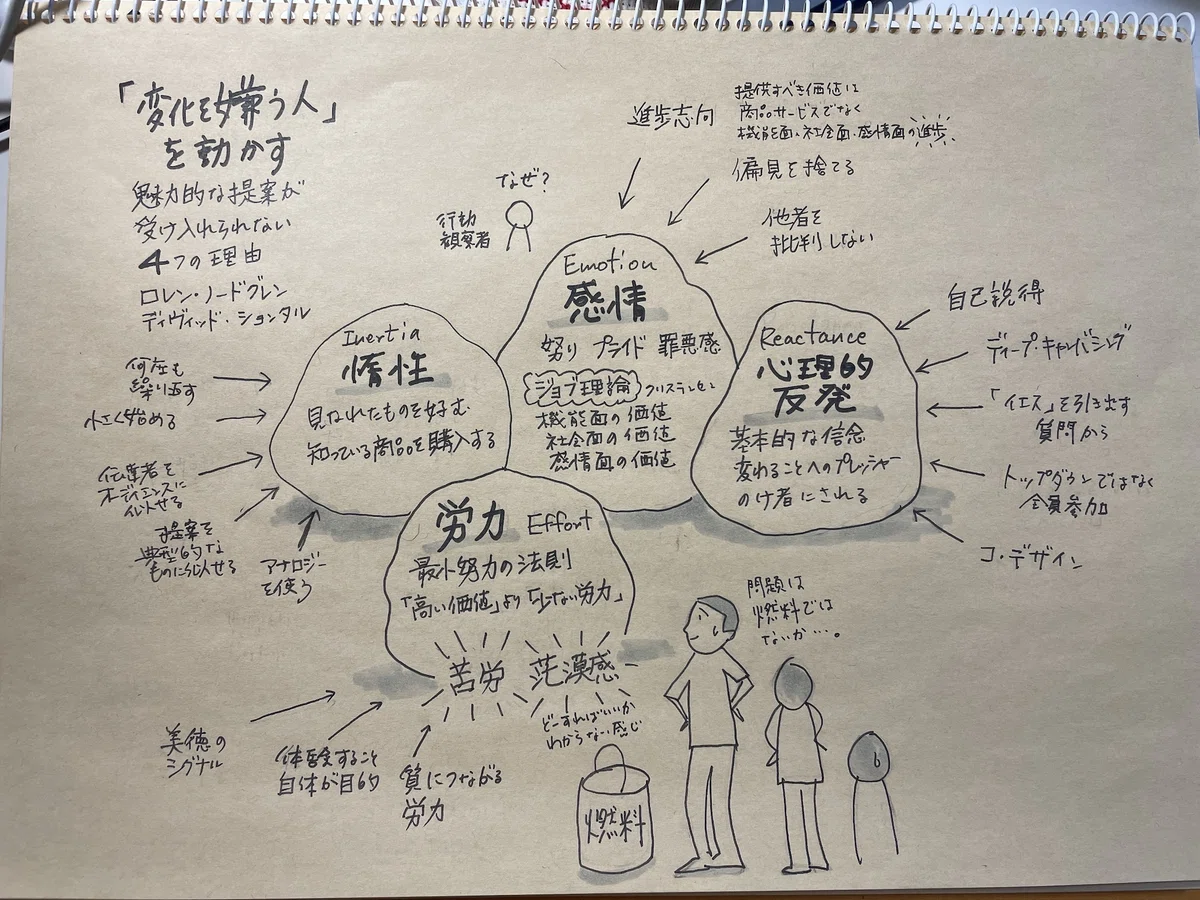 「変化を嫌う人」
を動かす
魅力的な提案が
受け入れられない
4つの理由
ロレン・ノードグレン
ディヴィッド・ションタル
なぜ?
行動
観察者
進歩志向
提供すべき価値は
商品サービスでなく
機能面、社会面、感情面の進歩
偏見を捨てる
他者を
批判しない
Emotion
感情
怒り プライド 罪悪感
ジョブ理論 クリステンセン
機能面の価値
社会面の価値
感情面の価値
Inertia
惰性
見なれたものを好む
知っている商品を購入する
何度も
繰り返す
小さく始める
伝達者を
オーディエンスに
似させる
提案を
典型的な
ものに似せる
アナロジー
を使う
Reactance
心理的
反発
基本的な信念
変わることへのプレッシャー
のけ者にされる
自己説得
ディープ・キャンバシング
「イエス」を引き出す
質問から
トップダウンではなく
全員参加
コ・デザイン
労力 Effort
最小努力の法則
「高い価値」より「少ない労力」
苦労 茫漠感
どーすればいいか
わからない感じ
美徳の
シグナル
体験すること
自体が目的
質につながる
労力
問題は
燃料では
ないか…。
燃料